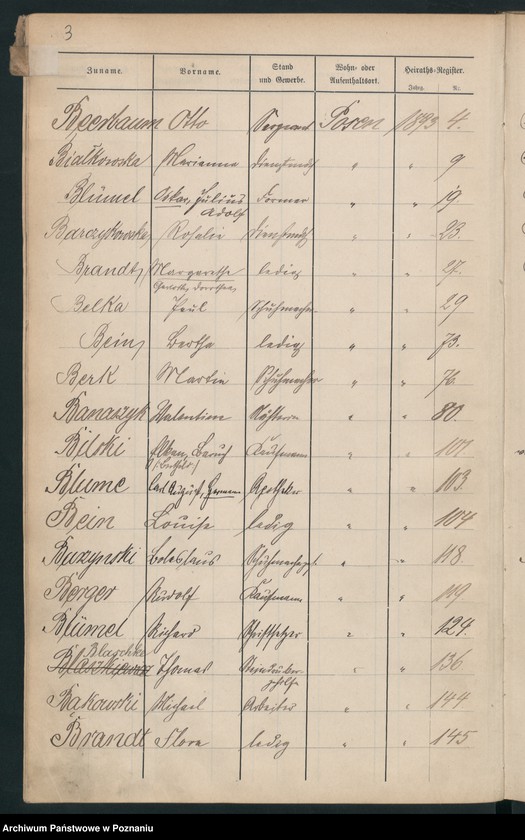 3
Zuname. Vorname. Stand und Gewerbe. Wohn- oder Aufenthaltsort. Heiraths-Register.
Jahrg. Nr.
Beerbaum Otto Sergeant Posen 1893 4.
Bialkowska Marianna Dienstmdch " " 9
Blümel Oskar, Julius Adolf Former " " 19
Barczykowska, Rosalie Dienstmdch " " 23.
Brandt, Margarethe ledig " " 27.
Belka Paul Schuhmacher " " 29
Bein, Bertha ledig " " 73.
Berk Martin Schuhmacher " " 76.
Banaszyk Valentine " " 80.
Bilski Baruch Kaufmann " " 101.
Blume Carl August, Hermann Apotheker " " 103
Bein Louise ledig " " 104
Buzynski Boleslaus " " 118.
Berger Rudolf Kaufmann " " 119
Blümel Richard Schriftsetzer " " 124.
Blaschke Thomas Steindrucker- gehilfe " " 136
Bakowski Michael Arbeiter " " 144
Brandt Flora ledig " " 145
Archiwum Państwowe w Poznaniu